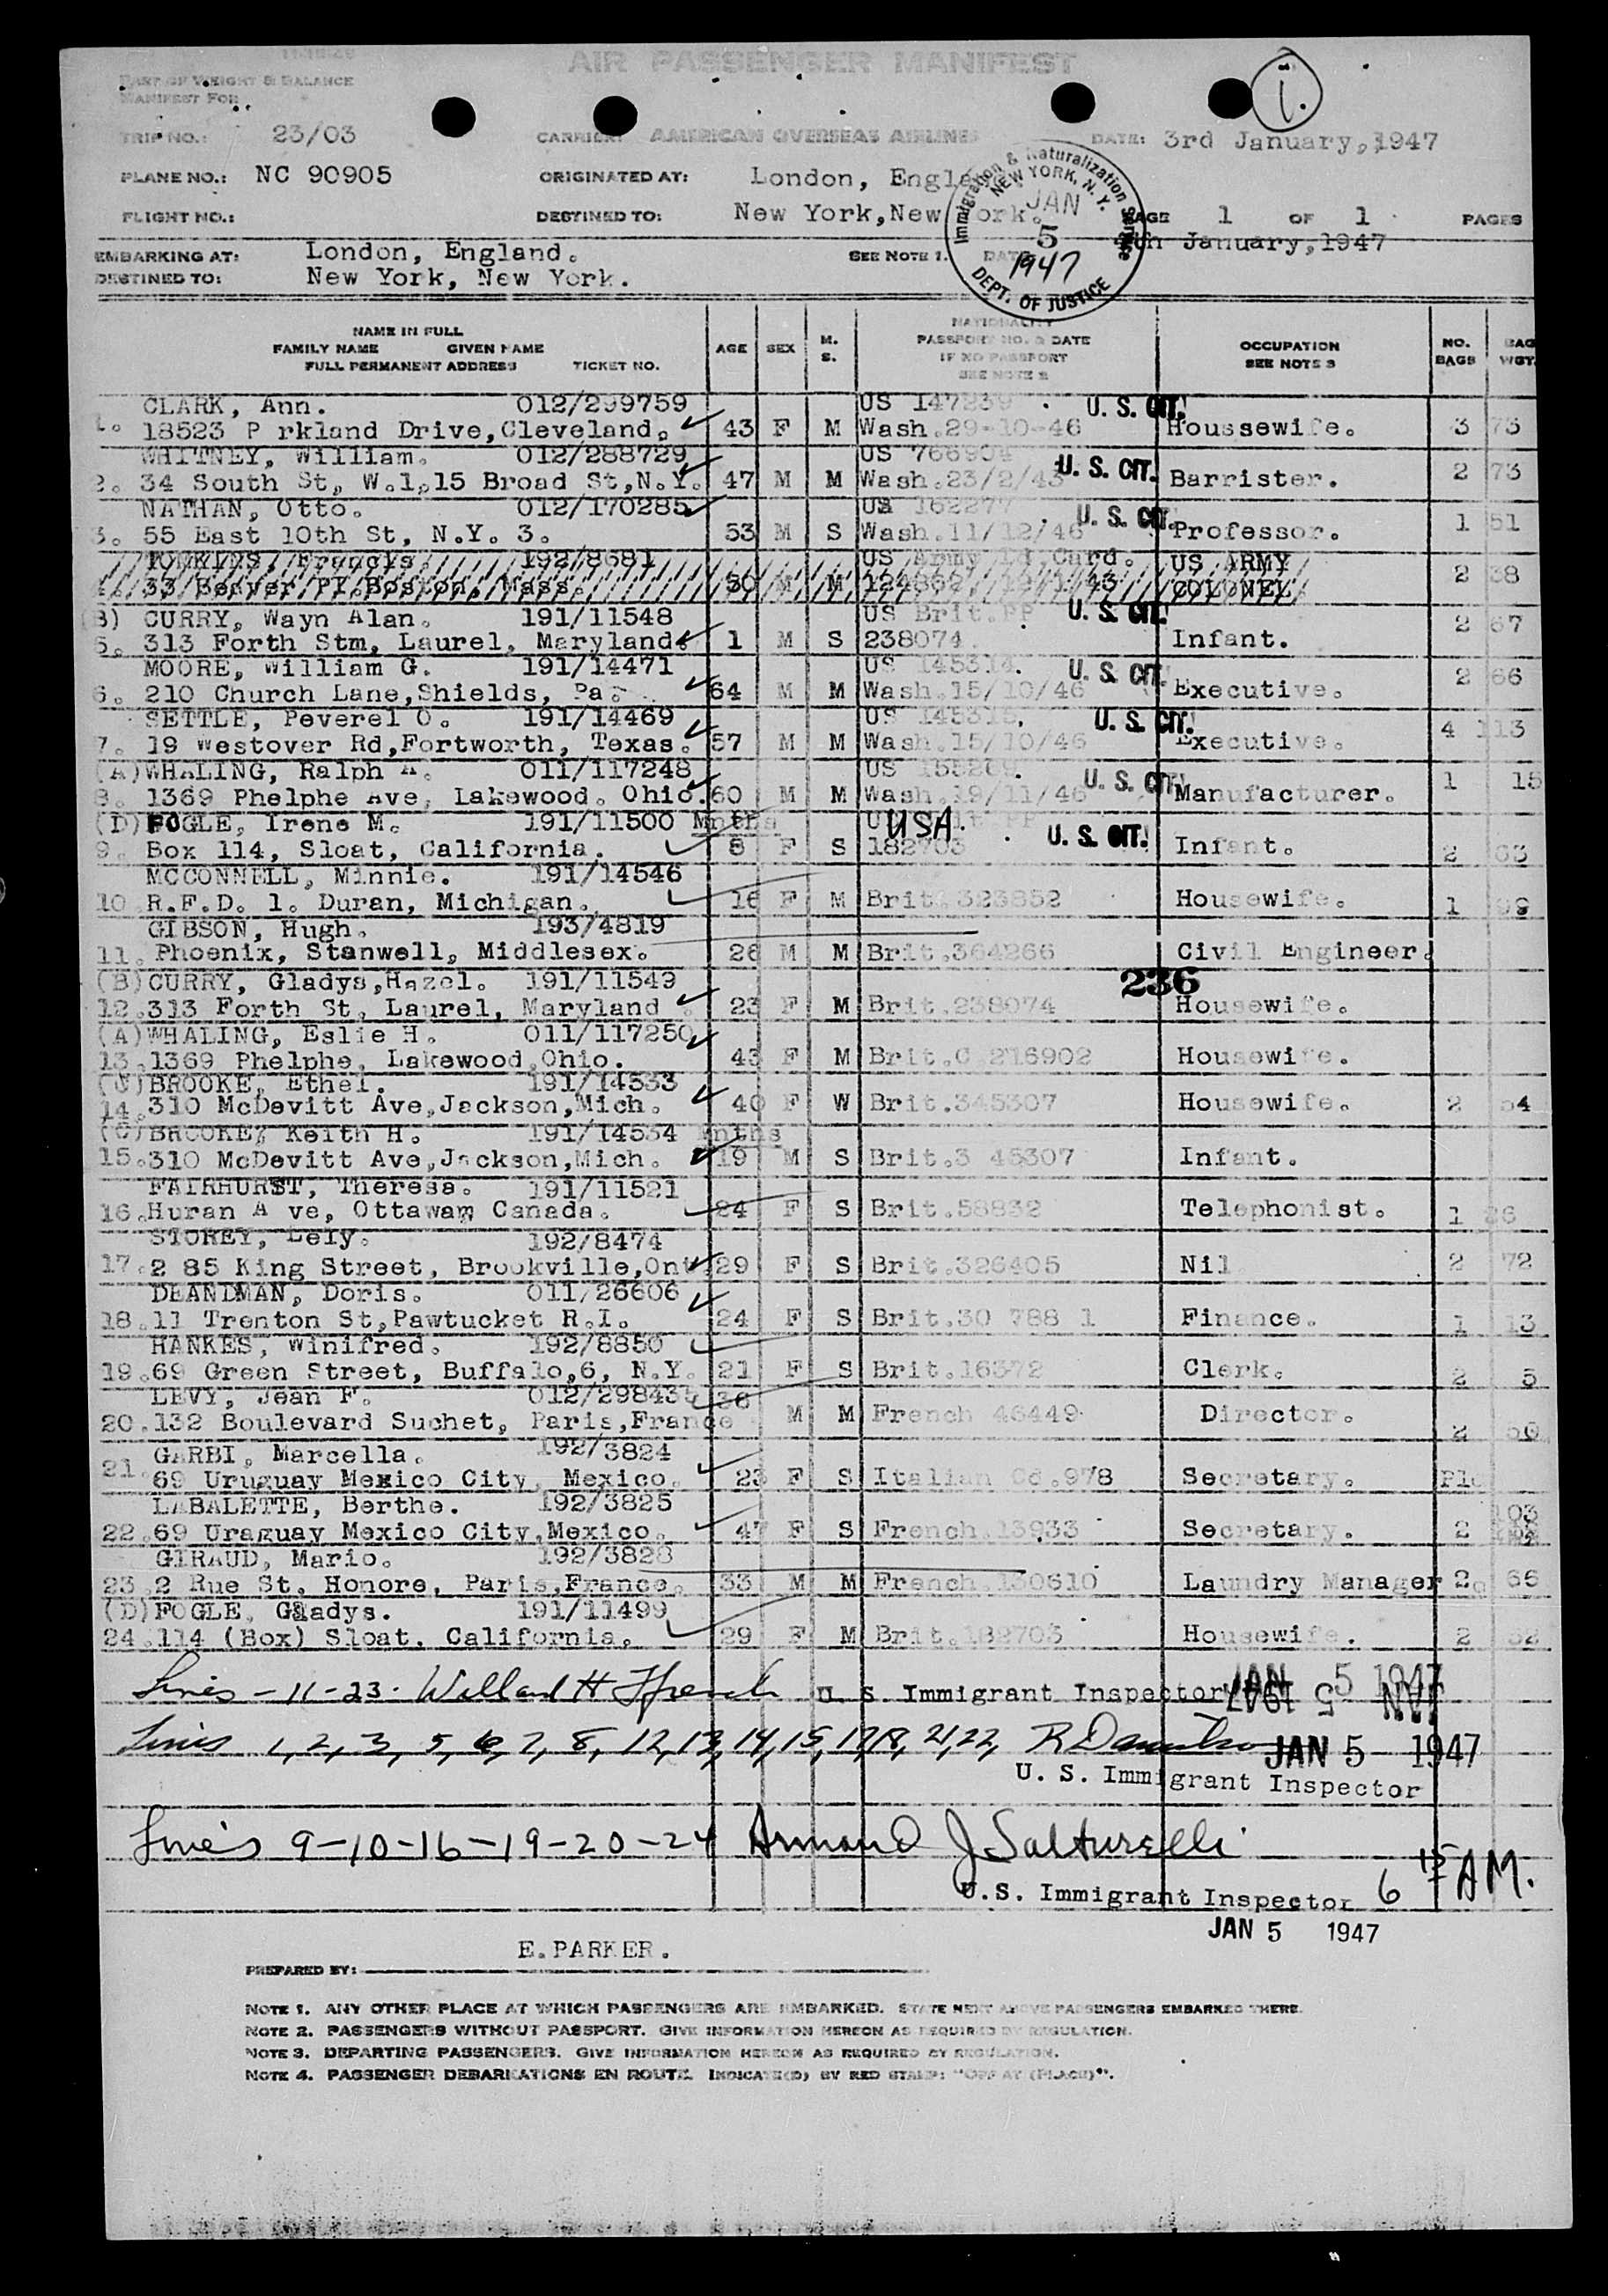 11-18-46
AIR PASSENGER MANIFEST
i.
PART OF WEIGHT & BALANCE
MANIFEST FOR
TRIP NO.: 23/03 CARRIER: AMERICAN OVERSEAS AIRLINES DATE: 3rd January,1947
PLANE NO.: NC 90905 ORIGINATED AT: London, England
FLIGHT NO.: DESTINED TO: New York,New York. PAGE 1 OF 1 PAGES
Immigration & Naturalization Service
NEW YORK, N.Y.
JAN
5
1947
DEPT. OF JUSTICE
EMBARKING AT: London, England. SEE NOTE 1. DATE 4th January,1947
DESTINED TO: New York, New York.
NAME IN FULL
FAMILY NAME GIVEN NAME
FULL PERMANENT ADDRESS TICKET NO. AGE SEX M. S. NATIONALITY PASSPORT NO. & DATE IF NO PASSPORT SEE NOTE 2 OCCUPATION SEE NOTE 3 NO. BAGS BAG WGT.
CLARK, Ann. 012/299759 US 147239 U. S. CIT.
1. 18523 P rkland Drive,Cleveland. 43 F M Wash.29-10-46 Houssewife. 3 73
WHITNEY, William. 012/288729 US 766904 U. S. CIT.
2. 34 South St, W.1,15 Broad St,N.Y. 47 M M Wash.23/2/43 Barrister. 2 73
NATHAN, Otto. 012/170285 US 162277 U. S. CIT.
3. 55 East 10th St, N.Y. 3. 53 M S Wash.11/12/46 Professor. 1 51
TOMKINS, Francis. 192/8681 US Army Id.Card. US ARMY
4. 33 Beaver Pl.Boston, Mass. 50 M M COLONEL 2 38
(B) CURRY, Wayn Alan. 191/11548 US Brit.PP U. S. CIT.
5. 313 Forth Stm, Laurel, Maryland 1 M S 238074 Infant. 2 67
MOORE, William G. 191/14471 US 145314. U. S. CIT.
6. 210 Church Lane,Shields, Pa. 64 M M Wash.15/10/46 Executive. 2 66
SETTLE, Peverel O. 191/14469 US 145315. U. S. CIT.
7. 19 Westover Rd,Fortworth, Texas. 57 M M Wash.15/10/46 Executive. 4 113
(A)WHALING, Ralph A. 011/117248 US 155269. U. S. CIT.
8. 1369 Phelphe Ave, Lakewood. Ohio. 60 M M Wash.19/11/46 Manufacturer. 1 15
(D)FOGLE, Irene M. 191/11500 Mnths USA. U. S. CIT.
9. Box 114, Sloat, California. 8 F S 182703 Infant. 2 63
MCCONNELL, Minnie. 191/14546
10.R.F.D. 1. Duran, Michigan. 16 F M Brit.323852 Housewife. 1 99
GIBSON, Hugh. 193/4819
11. Phoenix, Stanwell, Middlesex. 26 M M Brit.364266 Civil Engineer.
(B)CURRY, Gladys,Hazel. 191/11549 236
12.313 Forth St, Laurel, Maryland 23 F M Brit.238074 Housewife.
(A)WHALING, Eslie H. 011/117250
13.1369 Phelphe, Lakewood,Ohio. 43 F M Brit.C 216902 Housewife.
(C)BROOKE, Ethel. 191/14533
14.310 McDevitt Ave,Jackson,Mich. 40 F W Brit.345307 Housewife. 2 54
(C)BROOKE, Keith H. 191/14534 Mnths
15.310 McDevitt Ave,Jackson,Mich. 19 M S Brit.3 45307 Infant.
FAIRHURST, Theresa. 191/11521
16.Huran A ve, Ottawam Canada. 24 F S Brit.58832 Telephonist. 1 26
STOREY, Lely. 192/8474
17.2 85 King Street, Brookville,Ont 29 F S Brit.326405 Nil 2 72
DEANDMAN, Doris. 011/26606
18.11 Trenton St,Pawtucket R.I. 24 F S Brit.30 788 1 Finance. 1 13
HANKES, Winifred. 192/8850
19.69 Green Street, Buffalo,6, N.Y. 21 F S Brit.16372 Clerk. 2 5
LEVY, Jean F. 012/298435 36
20.132 Boulevard Suchet, Paris,France M M French 46449 Director. 2 50
GARBI, Marcella. 192/3824
21. 69 Uruguay Mexico City, Mexico. 23 F S Italian Cd.978 Secretary.
LABALETTE, Berthe. 192/3825 103
22.69 Uraguay Mexico City,Mexico. 47 F S French.13933 Secretary. 2
GIRAUD, Mario. 192/3828
23.2 Rue St. Honore, Paris,France. 33 M M French.130610 Laundry Manager 2 66
(D)FOGLE, Gladys. 191/11499
24.114 (Box) Sloat. California. 29 F M Brit.182703 Housewife. 2 52
Lines - 11-23. Willard H Ffrench U. S. Immigrant Inspector JAN 5 1947
JAN 5 1947
Lines 1, 2, 3, 5, 6, 7, 8, 12, 13, 14, 15, 17, 18, 21, 22, JAN 5 1947
U. S. Immigrant Inspector
Lines 9-10-16-19-20-24 Armand J Salturelli
U.S. Immigrant Inspector 6 15 AM.
JAN 5 1947
E.PARKER.
PREPARED BY:
NOTE 1. ANY OTHER PLACE AT WHICH PASSENGERS ARE EMBARKED. STATE NEXT ABOVE PASSENGERS EMBARKED THERE.
NOTE 2. PASSENGERS WITHOUT PASSPORT. GIVE INFORMATION HEREON AS REQUIRED BY REGULATION.
NOTE 3. DEPARTING PASSENGERS. GIVE INFORMATION HEREON AS REQUIRED BY REGULATION.
NOTE 4. PASSENGER DEBARKATIONS EN ROUTE. INDICATE(D) BY RED STAMP: "OFF AT (PLACE)".